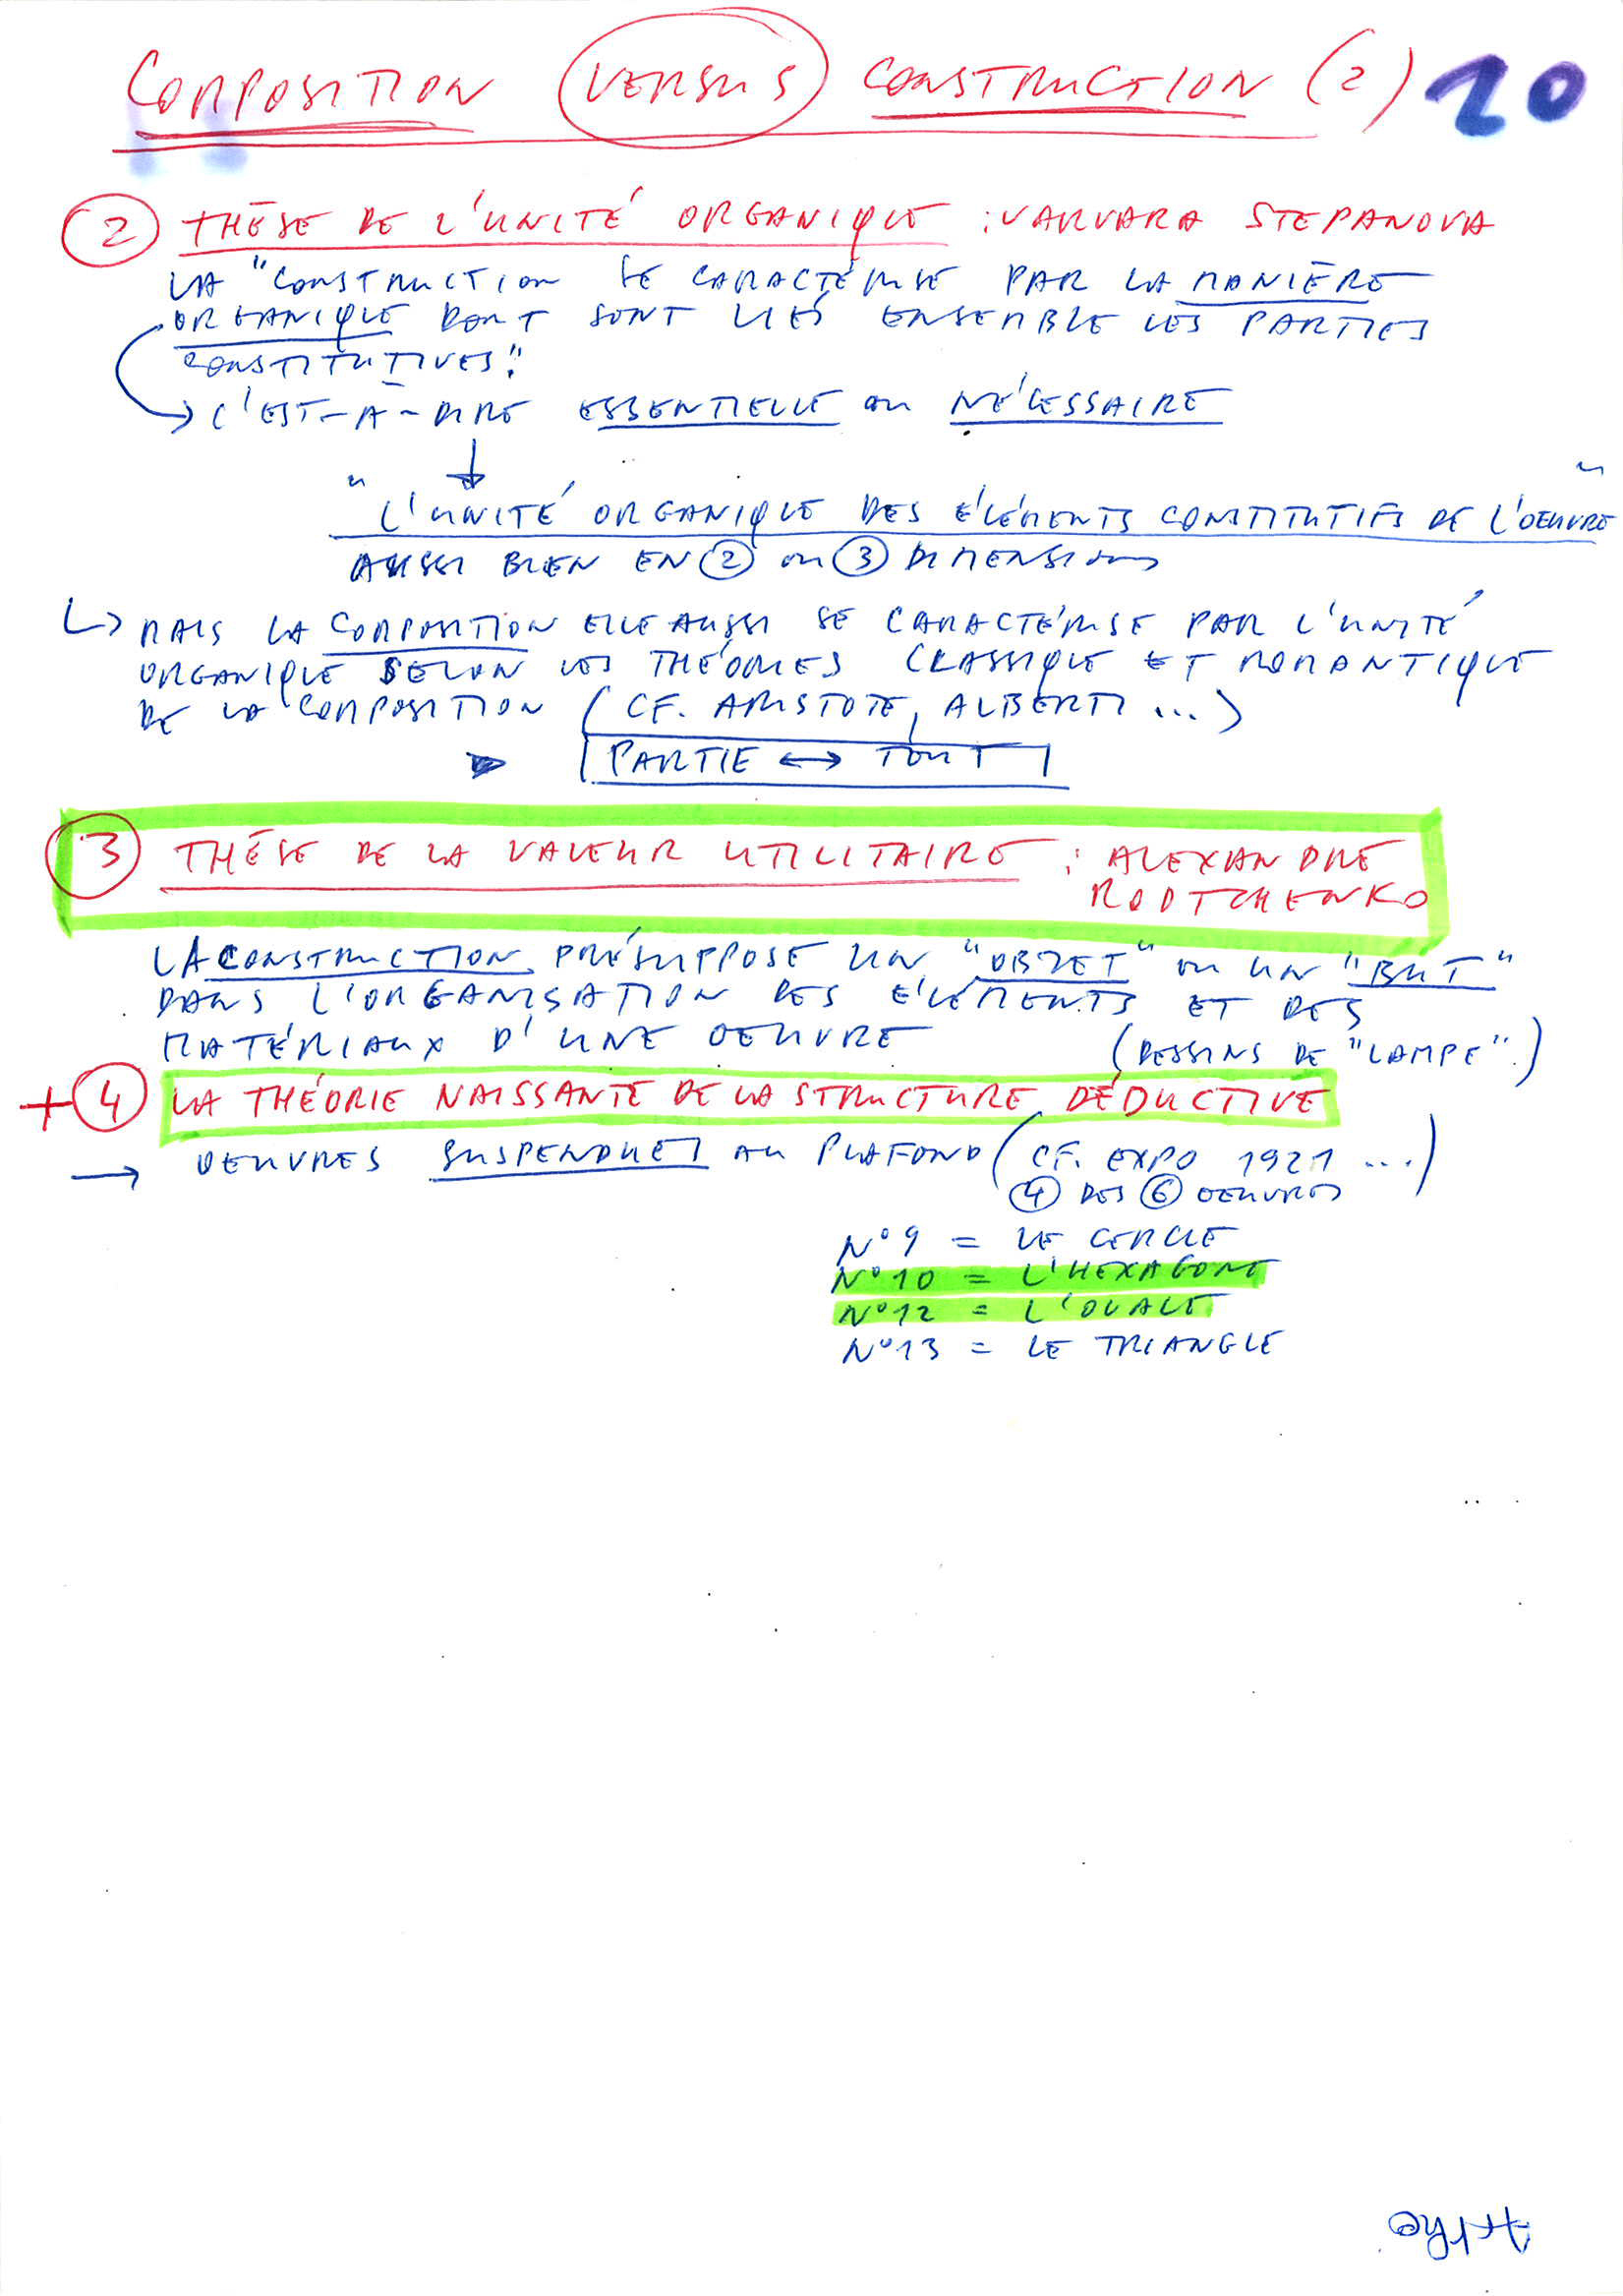 COMPOSITION VERSUS CONSTRUCTION (2) 20
2 THÈSE DE L'UNITÉ ORGANIQUE : VARVARA STEPANOVA
LA "CONSTRUCTION SE CARACTÉRISE PAR LA MANIÈRE
ORGANIQUE DONT SONT LIÉS ENSEMBLE LES PARTIES
CONSTITUTIVES".
→ C'EST-À-DIRE ESSENTIELLE OU NÉCESSAIRE
↓
"L'UNITÉ ORGANIQUE DES ÉLÉMENTS CONSTITUTIFS DE L'OEUVRE"
AUSSI BIEN EN 2 OU 3 DIMENSIONS
↳ MAIS LA COMPOSITION ELLE AUSSI SE CARACTÉRISE PAR L'UNITÉ
ORGANIQUE SELON LES THÉORIES CLASSIQUE ET ROMANTIQUE
DE LA COMPOSITION (CF. ARISTOTE, ALBERTI ...)
PARTIE ↔ TOUT
3 THÈSE DE LA VALEUR UTILITAIRE : ALEXANDRE
RODTCHENKO
LA CONSTRUCTION PRÉSUPPOSE UN "OBJET" OU UN "BUT"
DANS L'ORGANISATION DES ÉLÉMENTS ET DES
MATÉRIAUX D'UNE OEUVRE (DESSINS DE "LAMPE".)
+ 4 LA THÉORIE NAISSANTE DE LA STRUCTURE DÉDUCTIVE
→ OEUVRES SUSPENDUES AU PLAFOND (CF. EXPO 1921 ...)
4 DES 6 OEUVRES
N°9 = LE CERCLE
N°10 = L'HEXAGONE
N°12 = L'OVALE
N°13 = LE TRIANGLE